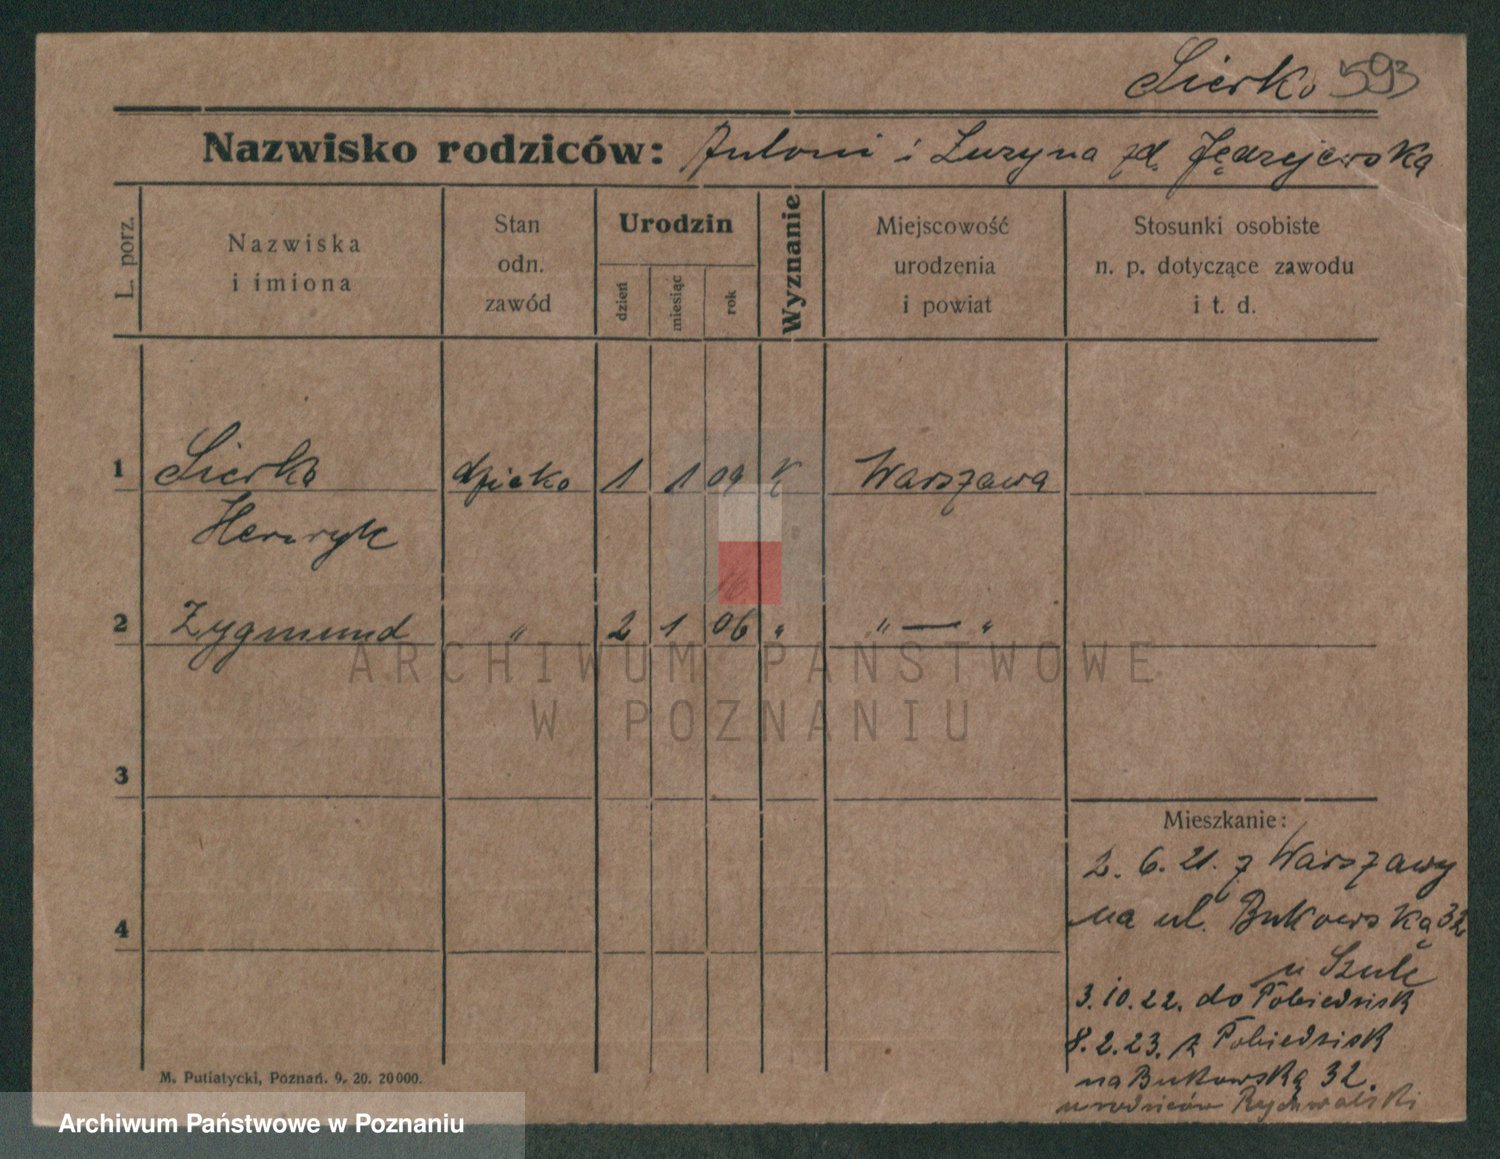 Sierko 593
Nazwisko rodziców: Antoni i Luzyna zd. Jędrzejewska
L. porz.
Nazwiska
i imiona
Stan
odn.
zawód
Urodzin
dzień
miesiąc
rok
Wyznanie
Miejscowość
urodzenia
i powiat
Stosunki osobiste
n. p. dotyczące zawodu
i t. d.
1 Sierko dziecko 1 1 09 K Warszawa
Henryk
2 Zygmund " 2 1 06 " " — "
ARCHIWUM PAŃSTWOWE
W POZNANIU
3
4
Mieszkanie:
2. 6. 21. z Warszawy
na ul. Bukowską 32
u Szulc
3. 10. 22. do Pobiedzisk
8. 2. 23. z Pobiedzisk
na Bukowską 32.
u rodziców Rychwalski
M. Putiatycki, Poznań. 9. 20. 20000.
Archiwum Państwowe w Poznaniu